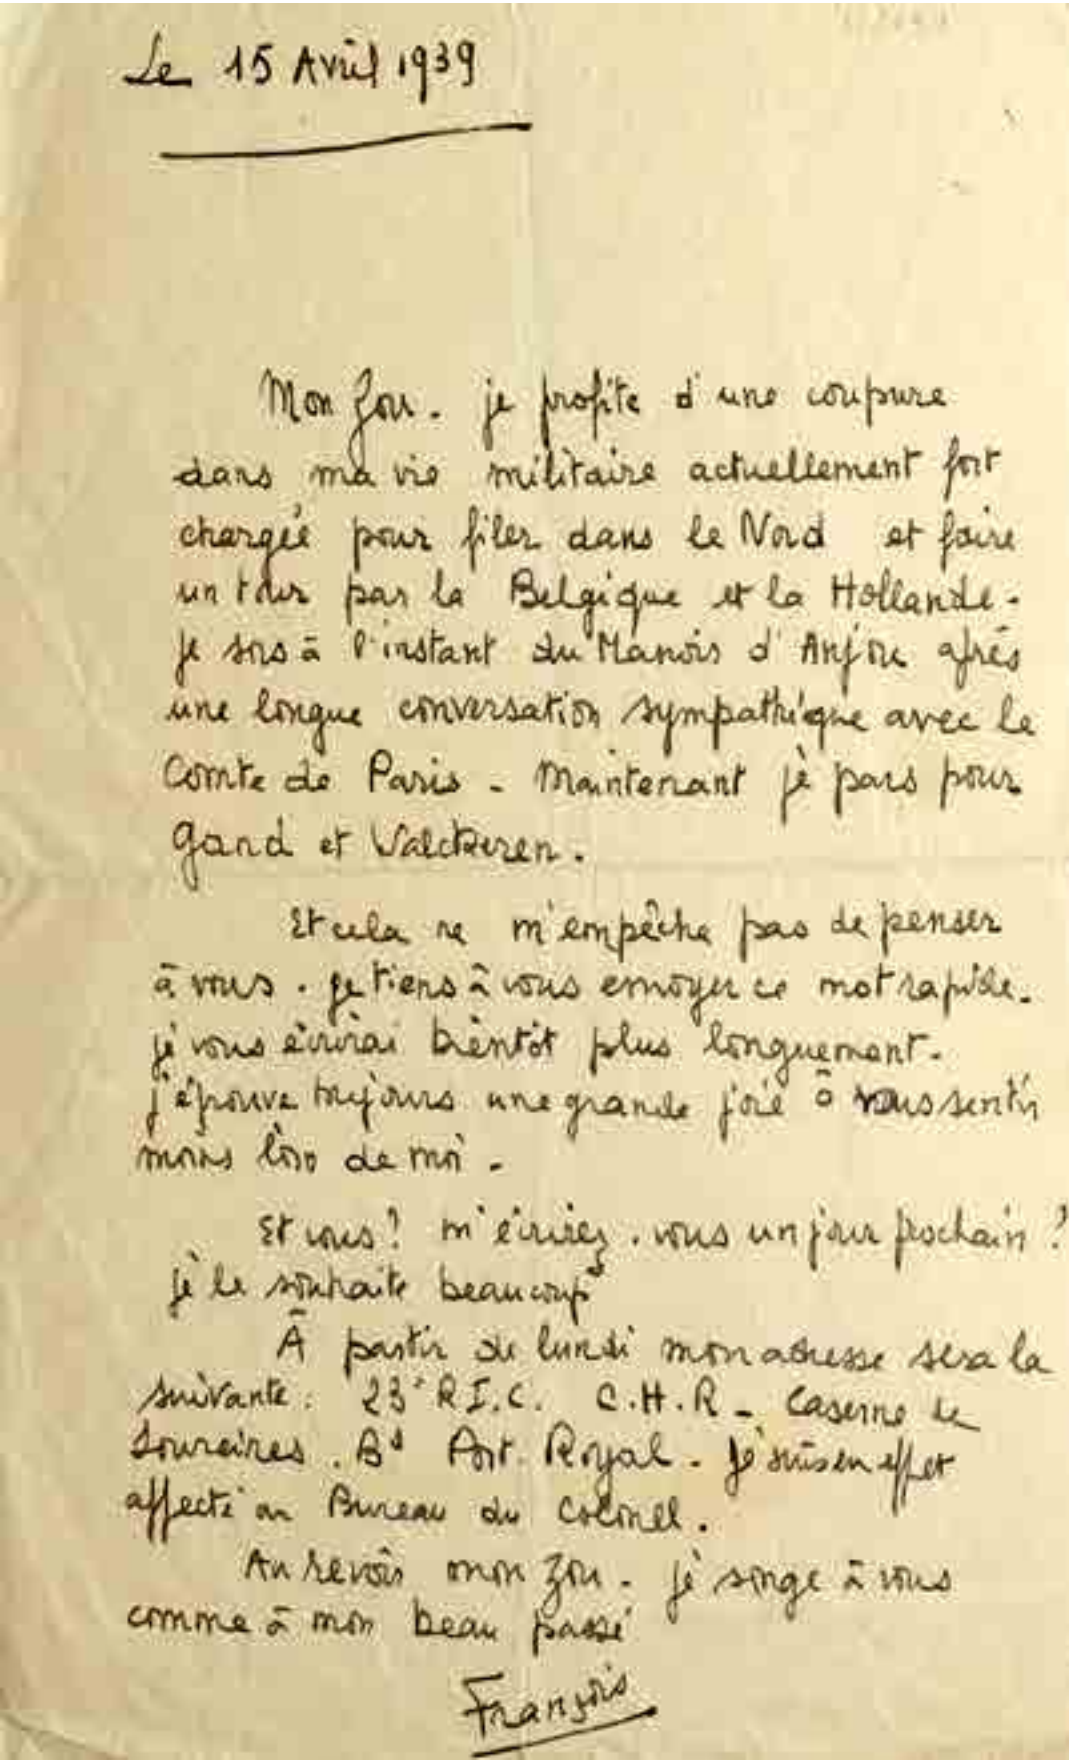 Le 15 Avril 1939
Mon Zou. je profite d'une coupure
dans ma vie militaire actuellement fort
chargée pour filer dans le Nord et faire
un tour par la Belgique et la Hollande.
je sors à l'instant du Manoir d'Anjou après
une longue conversation sympathique avec le
Comte de Paris - Maintenant je pars pour
Gand et Valckeren.
Et cela ne m'empêche pas de penser
à vous. je tiens à vous envoyer ce mot rapide.
je vous écrirai bientôt plus longuement.
j'éprouve toujours une grande joie à vous sentir
moins loin de moi.
Et vous? m'écrirez-vous un jour prochain?
je le souhaite beaucoup
À partir de lundi mon adresse sera la
suivante: 23e R.I.C. C.H.R - Caserne de
Lourcines. Bd Port. Royal. Je suis en effet
affecté au Bureau du Colonel.
Au revoir mon Zou. je songe à vous
comme à mon beau passé
François